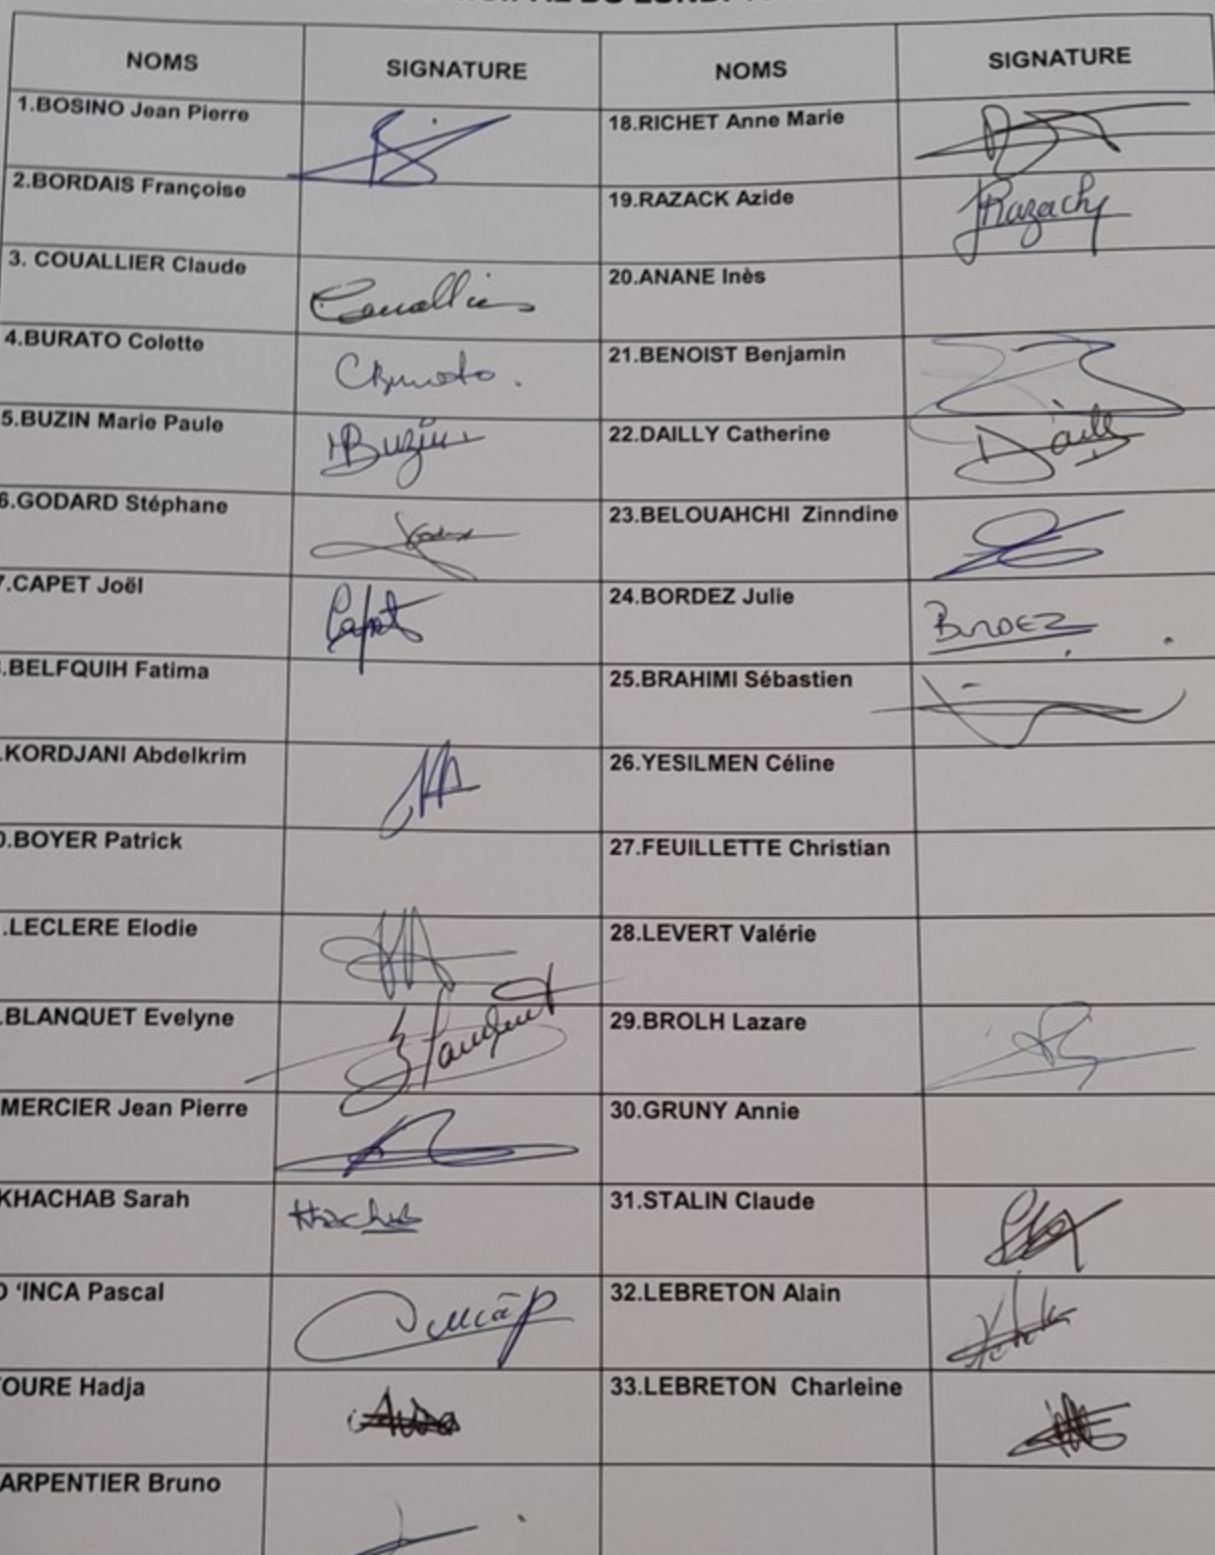 DU LUNDI
NOMS SIGNATURE NOMS SIGNATURE
1.BOSINO Jean Pierre 18.RICHET Anne Marie
2.BORDAIS Françoise 19.RAZACK Azide Razack
3. COUALLIER Claude Couallier 20.ANANE Inès
4.BURATO Colette CBurato. 21.BENOIST Benjamin
5.BUZIN Marie Paule MBuzin 22.DAILLY Catherine Dailly
6.GODARD Stéphane 23.BELOUAHCHI Zinndine
7.CAPET Joël Capet 24.BORDEZ Julie BORDEZ
.BELFQUIH Fatima 25.BRAHIMI Sébastien
.KORDJANI Abdelkrim 26.YESILMEN Céline
0.BOYER Patrick 27.FEUILLETTE Christian
.LECLERE Elodie 28.LEVERT Valérie
.BLANQUET Evelyne Blanquet 29.BROLH Lazare
MERCIER Jean Pierre 30.GRUNY Annie
KHACHAB Sarah Khachab 31.STALIN Claude
D 'INCA Pascal 32.LEBRETON Alain
OURE Hadja 33.LEBRETON Charleine
ARPENTIER Bruno